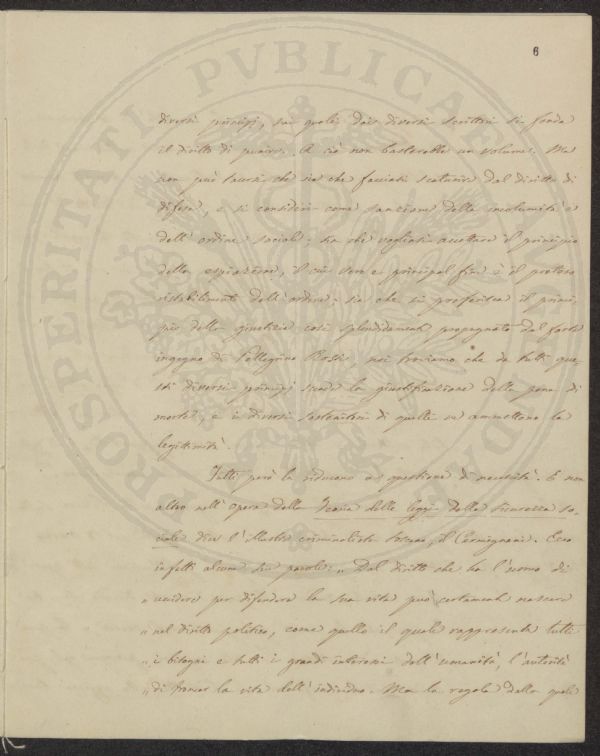 6
diversi principj, sui quali dai diversi scrittori si fonda
il diritto di punire. A ciò non basterebbe un volume. Ma
non può tacersi che sia che facciasi scaturire dal diritto di
difesa, e si consideri come sanzione della incolumità e
dell'ordine sociale; sia che vogliasi accettare il principio
della espiazione, il cui vero e principal fine è il preteso
ristabilimento dell'ordine; sia che si preferisca il princi-
pio della giustizia così splendidamente propugnato dal forte
ingegno di Pellegrino Rossi, noi troviamo che da tutti que-
sti diversi principj scende la giustificazione della pena di
morte, e i diversi sostenitori di quelli ne ammettono la
legittimità.
Tutti però la riducono a questione di necessità. E non
altro nell'opera della Teoria delle leggi della sicurezza so-
ciale dice l'illustre criminalista toscano, il Carmignani. Ecco
infatti alcune sue parole: „ Dal diritto che ha l'uomo di
„ uccidere per difendere la sua vita può certamente nascere
„ nel diritto politico, come quello il quale rappresenta tutti
„ i bisogni e tutti i grandi interessi dell'umanità, l'autorità
„ di troncar la vita dell'individuo. Ma la regola dalla quale
PROSPERITATI PVBLICAE AVGENDAE